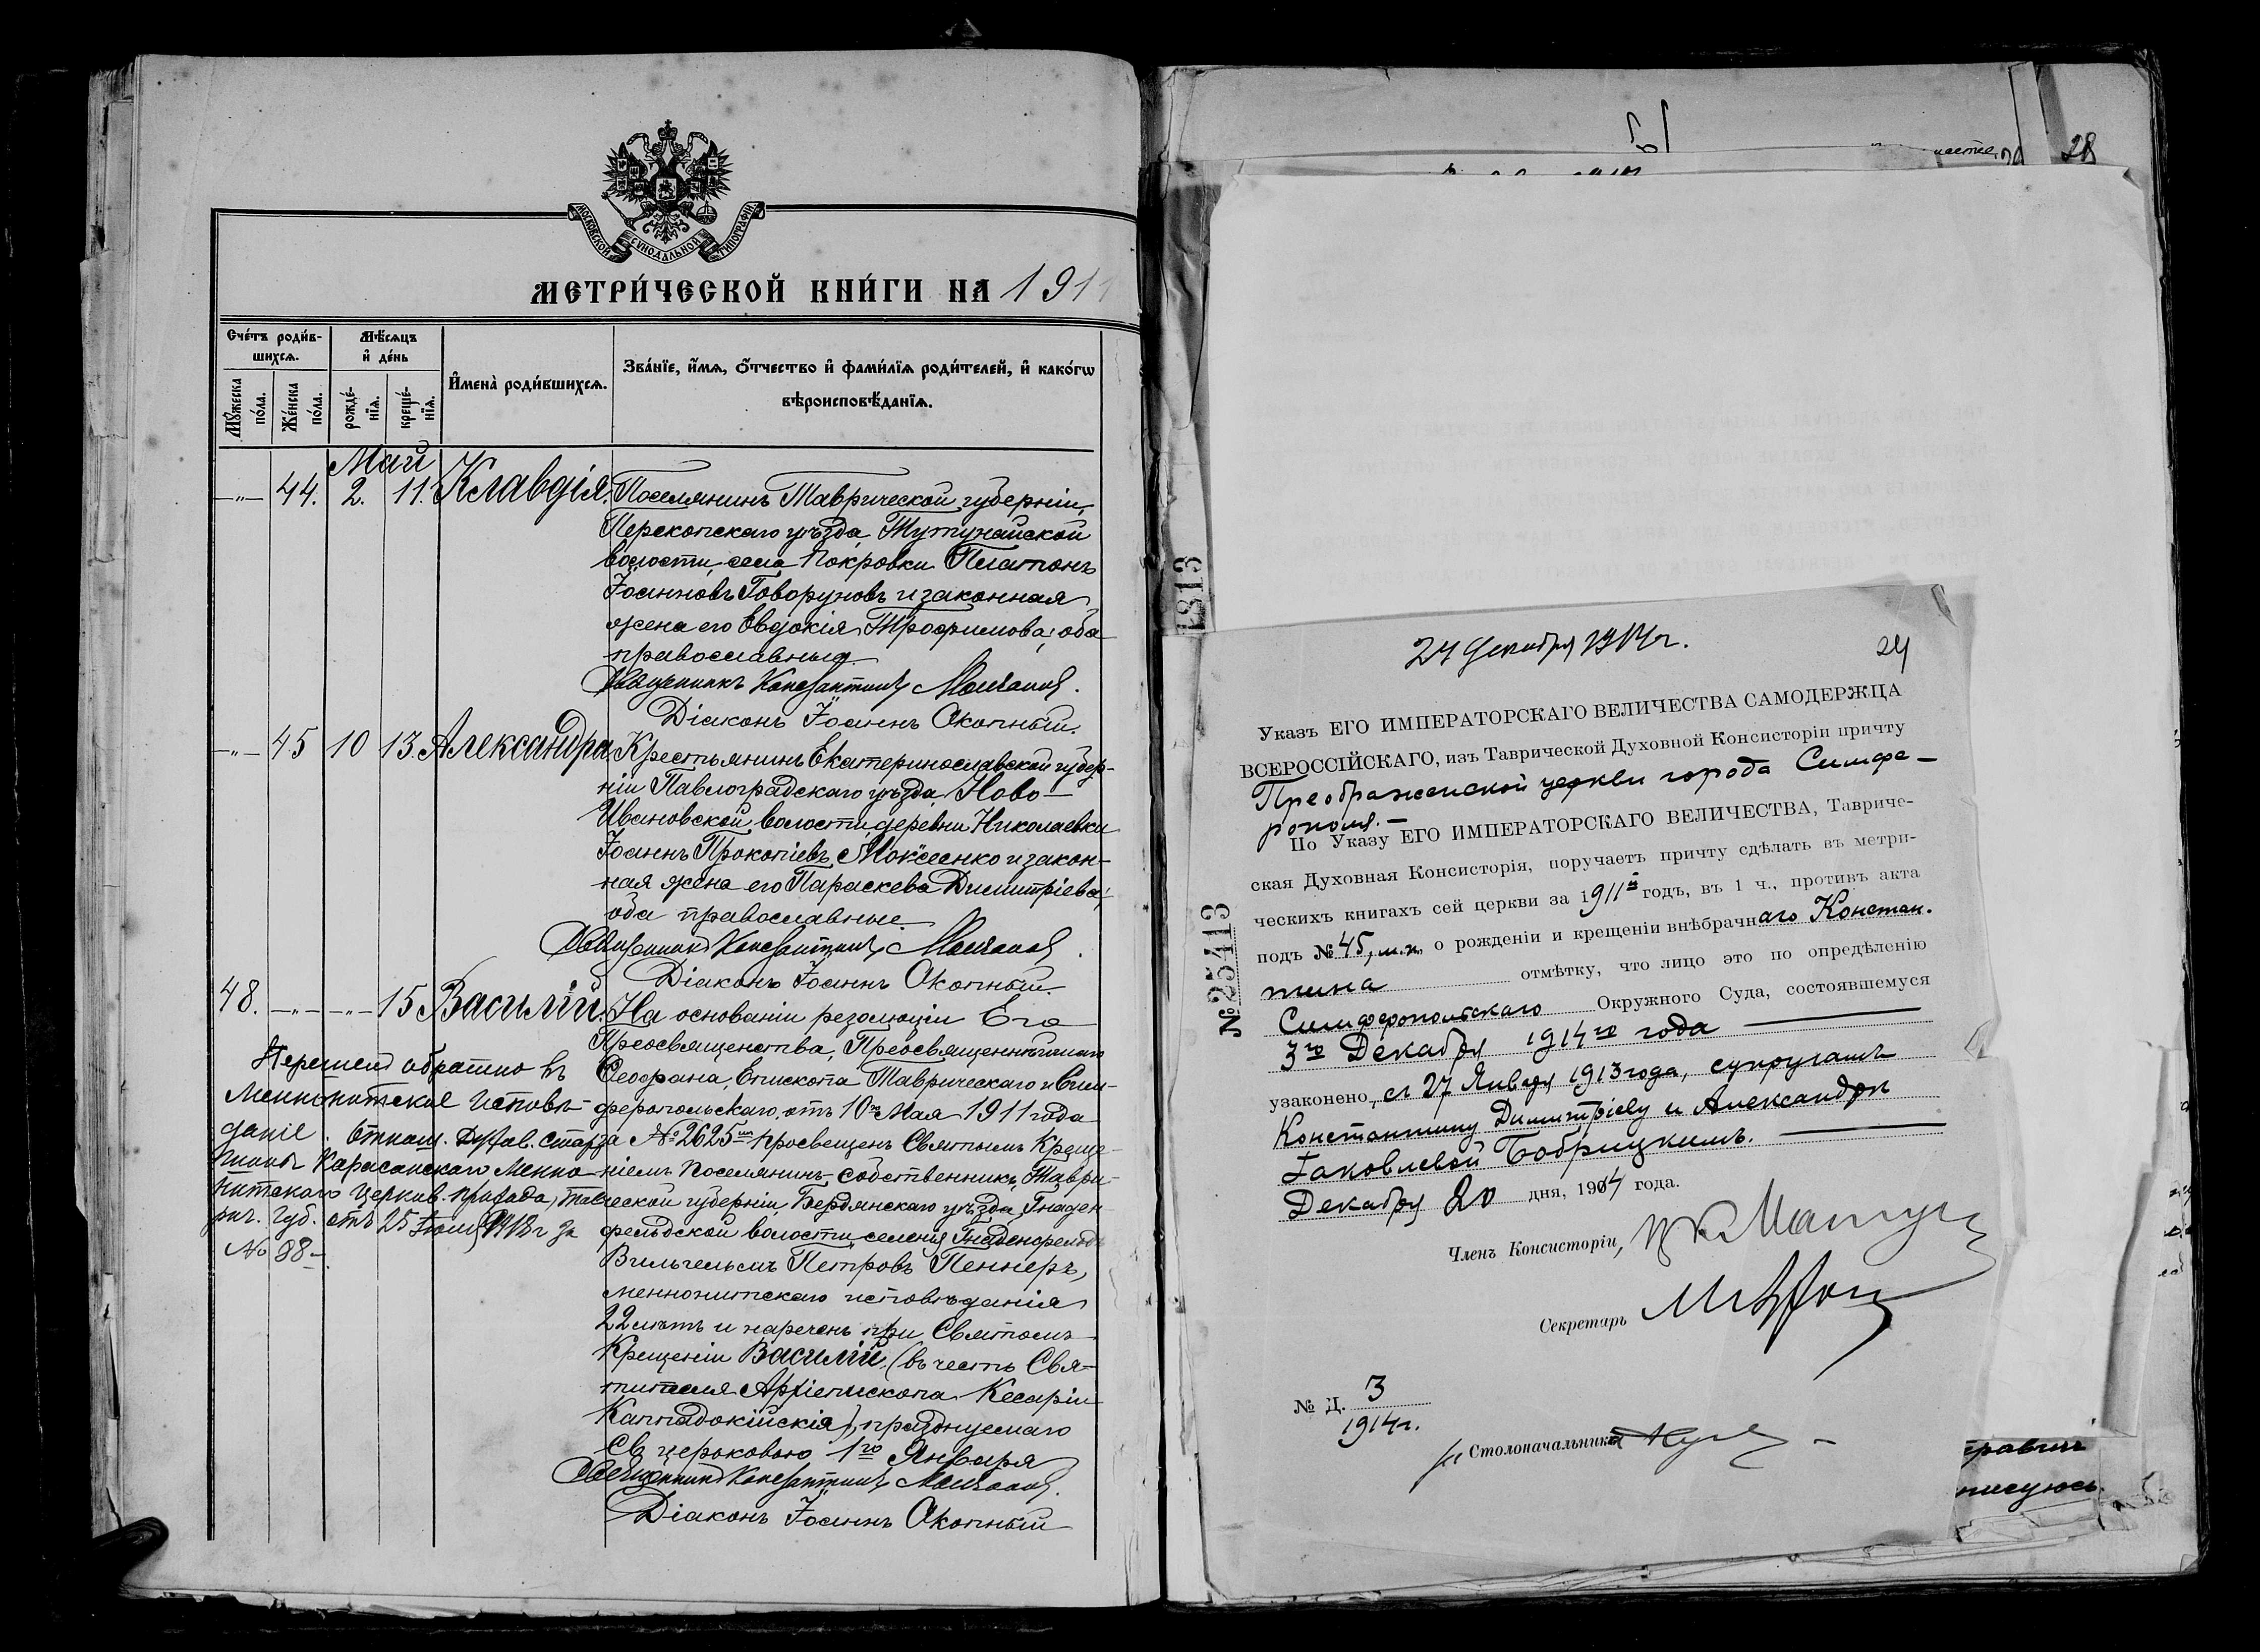 МОСКОВСКОЙ СѴНОДАЛЬНОЙ ТИПОГРАФІИ
МЕТРИ́ЧЕСКОЙ КНИ́ГИ НА 1911
Сче́тъ роди́в-
шихся.
Мѣ́сяцъ
и҆ де́нь
Мꙋ́жеска
по́ла.
Же́нска
по́ла.
рожде́-
нїя.
креще́-
нїя.
И҆мена̀ роди́вшихся.
Зва́нїе, и҆́мя, ѻ҆́тчество и҆ фами́лїя роди́телей, и҆ како́гѡ
вѣроисповѣ́данїя.
Май
—„— 44. 2. 11. Клавдія. Поселянинъ Таврической губерніи,
Перекопскаго уѣзда, Тутунайской
волости, села Покровки Платонъ
Іоанновъ Говоруновъ и законная
жена его Евдокія Трофимова; оба
православныя.
Священникъ Константинъ Молчановъ.
Діаконъ Іоаннъ Окопный.
—„— 45 10 13. Александра. Крестьянинъ Екатеринославской губер-
ніи Павлоградскаго уѣзда, Ново-
Ивановской волости деревни Николаевки
Іоаннъ Прокопіевъ Мокіенко и закон-
ная жена его Параскева Димитріева;
оба православные.
Священникъ Константинъ Молчановъ.
Діаконъ Іоаннъ Окопный.
48. —„— —„— 15 Василій. На основаніи резолюціи Его
Преосвященства, Преосвященнѣйшаго
Ѳеофана, Епископа Таврическаго и Сим-
феропольскаго, отъ 10го Мая 1911 года
за № 2625мъ просвещенъ Святымъ Креще-
ніемъ поселянинъ-собственникъ, Таври-
ческой губерніи, Бердянскаго уѣзда, Гнаден-
фельдской волости, селенія Гнаденфельдъ
Вильгельмъ Петровъ Пеннеръ,
меннонитскаго исповѣданія
22 лѣтъ и нареченъ при Святомъ
Крещеніи Василій (въ честь Свя-
тителя Архіепископа Кесаріи
Каппадокійскія), празднуемаго
Св. церковью 1го Января
Священникъ Константинъ Молчановъ.
Діаконъ Іоаннъ Окопный
Перешелъ обратно въ
Меннонитское исповѣ-
даніе. Отнош.
Карасанскаго Менно-
нитскаго церков. прихода, Тав-
рич. губ. отъ 25 Іюля 1918 г за
№ 88-.
28
1813
24 Декабря 1914 г.
24
Указъ ЕГО ИМПЕРАТОРСКАГО ВЕЛИЧЕСТВА САМОДЕРЖЦА
ВСЕРОССІЙСКАГО, изъ Таврической Духовной Консисторіи причту
Преображенской церкви города Симфе-
рополя.-
По Указу ЕГО ИМПЕРАТОРСКАГО ВЕЛИЧЕСТВА, Тавриче-
ская Духовная Консисторія, поручаетъ причту сдѣлать въ метри-
ческихъ книгахъ сей церкви за 1911й годъ, въ 1 ч., противъ акта
подъ № 45, м.п. о рожденіи и крещеніи внѣбрачнаго Констан-
тина отмѣтку, что лицо это по опредѣленію
Симферопольскаго Окружного Суда, состоявшемуся
3го Декабря 1914го года
узаконено, съ 27 Января 1913 года, супругамъ
Константину Димитріеву и Александрѣ
Іаковлевой Бобрицкимъ.
Декабря 20 дня, 1914 года.
Членъ Консисторіи,
Секретарь
№ Д. 3
1914 г.
Столоначальника
№ 25413